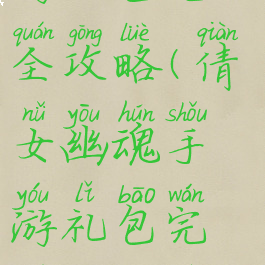 quán gōng lüè qiàn
全攻略(倩
nǚ yōu hún shǒu
女幽魂手
yóu lǐ bāo wán
游礼包完